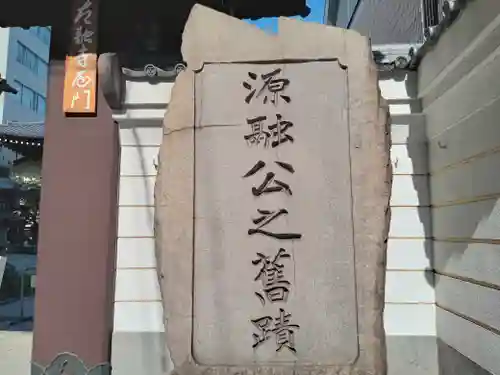 源融公之舊蹟
門